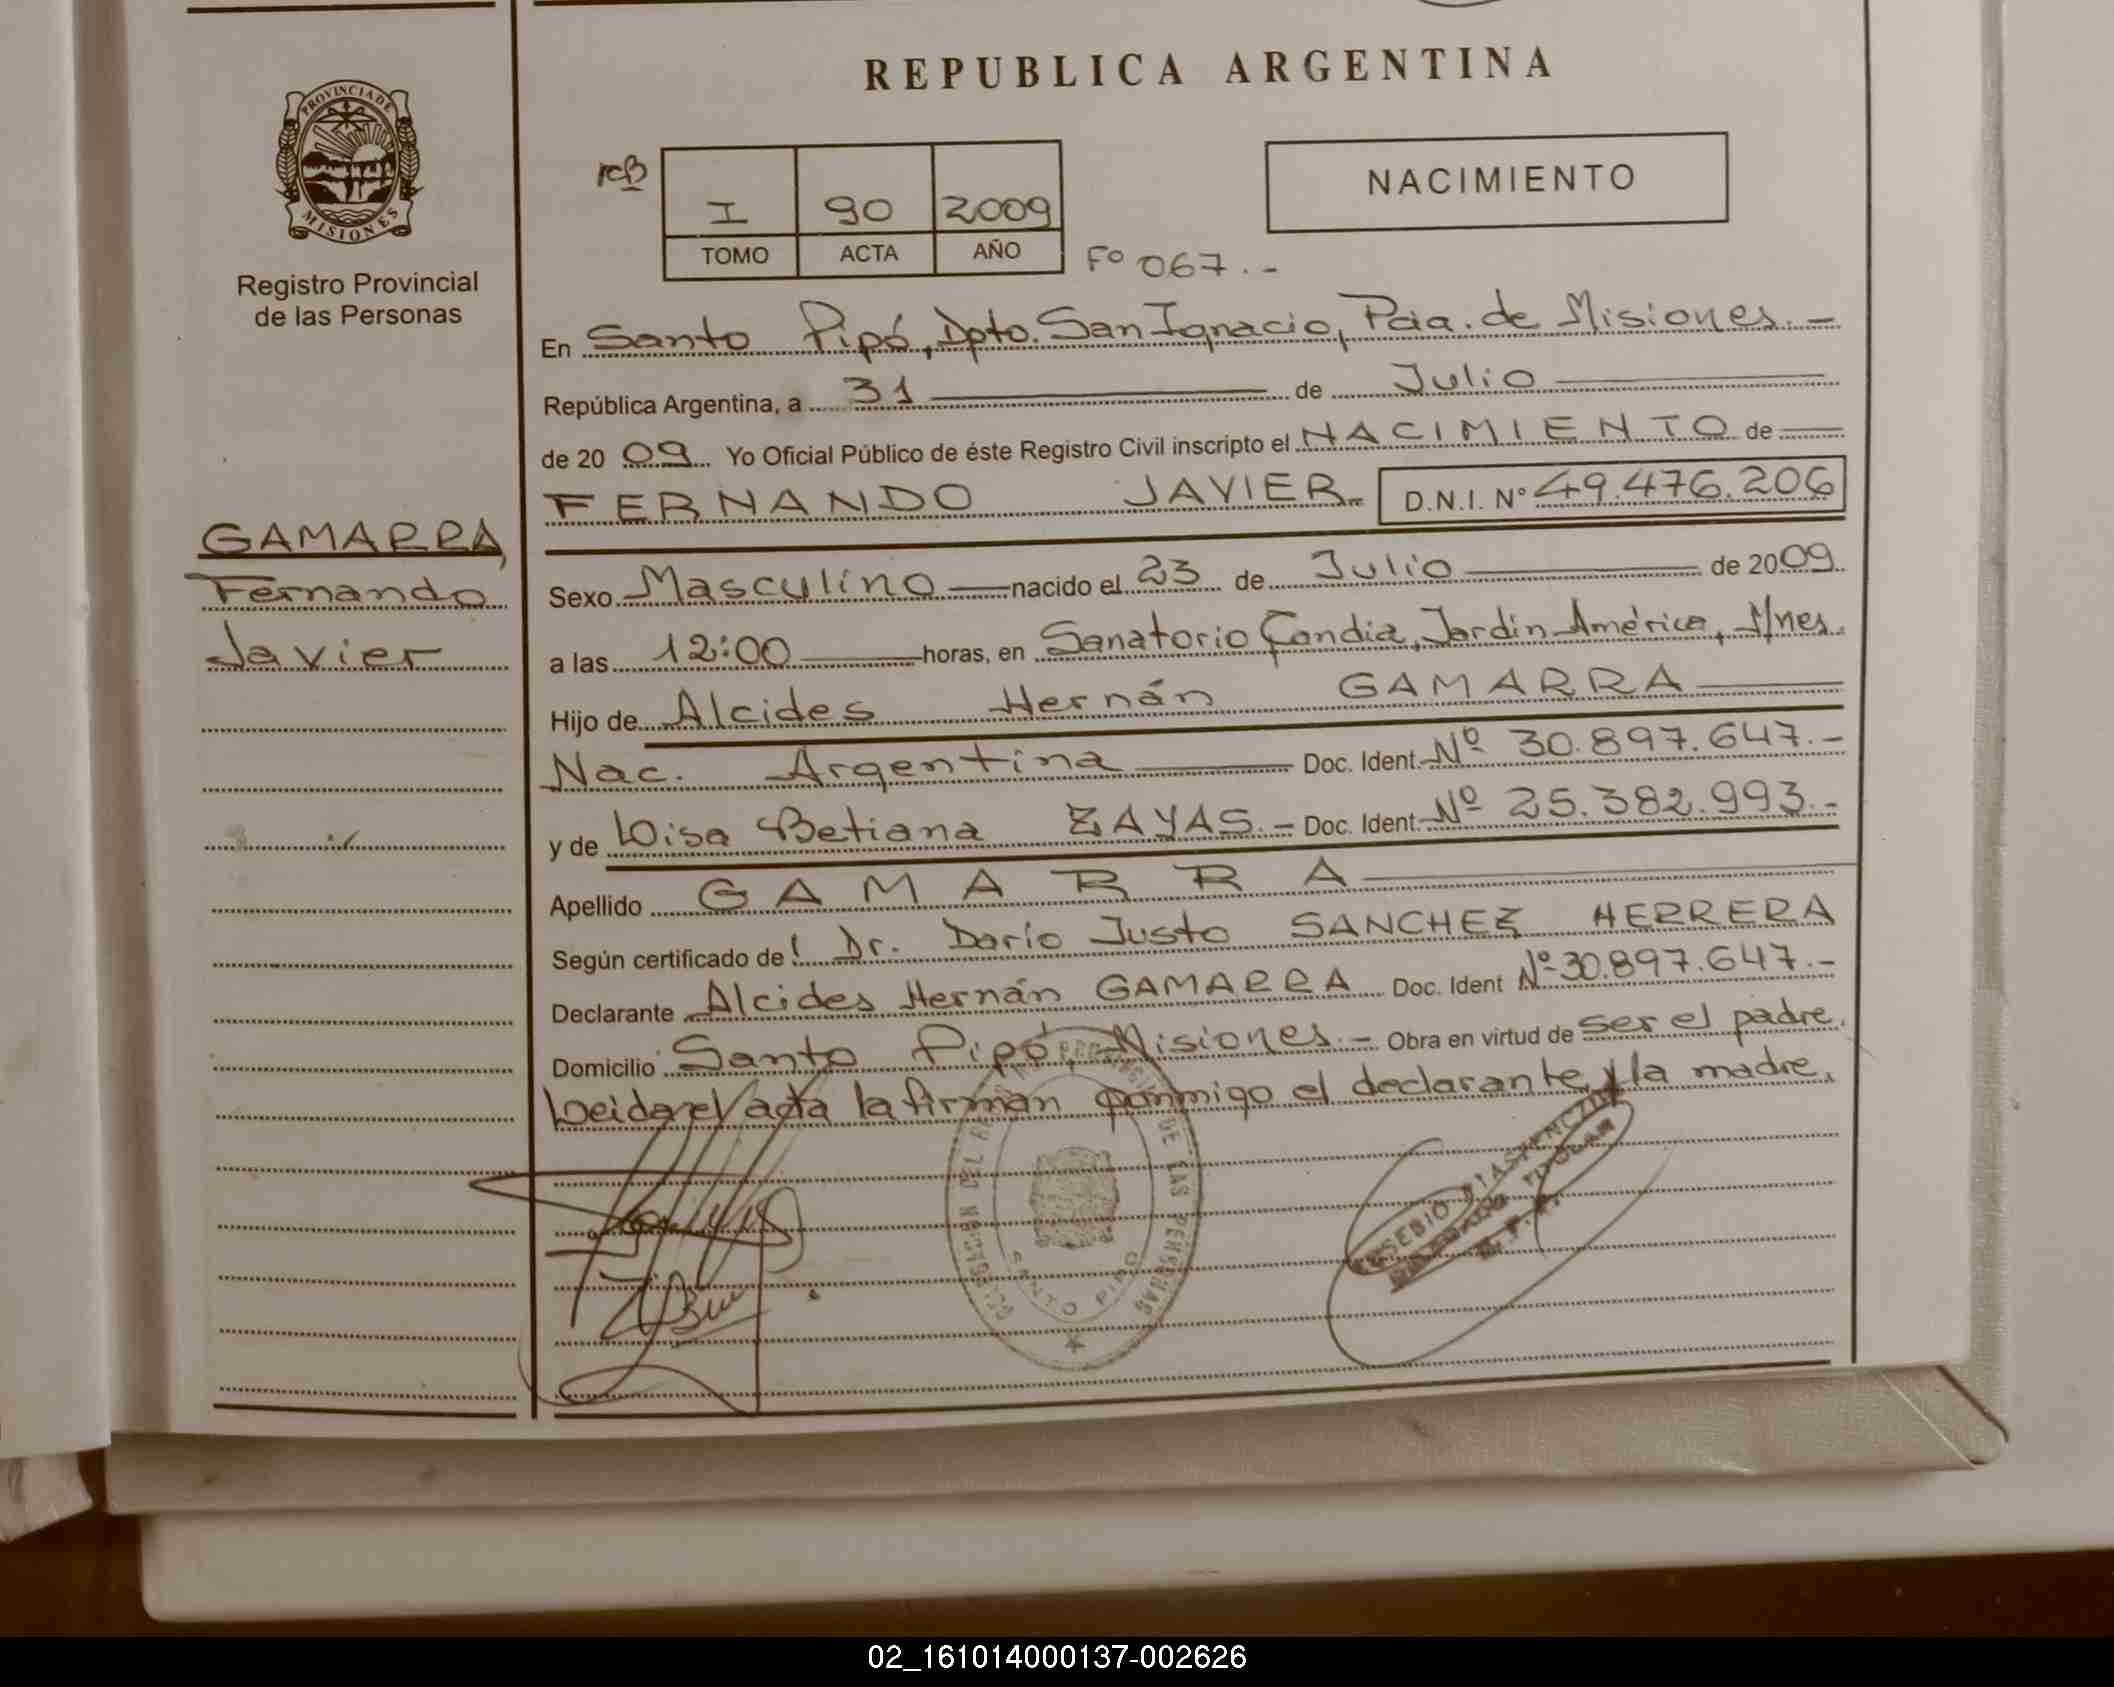 REPUBLICA ARGENTINA
PROVINCIA DE
MISIONES
Registro Provincial
de las Personas
NACIMIENTO
I 90 2009
TOMO ACTA AÑO
Fº 067.-
En Santo Pipó, Dpto. San Ignacio, Pcia. de Misiones.-
República Argentina, a 31 de Julio
de 20 09 Yo Oficial Público de éste Registro Civil inscripto el NACIMIENTO de
FERNANDO JAVIER.- D.N.I. Nº 49.476.206
GAMARRA,
Fernando
Javier
Sexo Masculino nacido el 23 de Julio de 2009.
a las 12:00 horas, en Sanatorio Candia, Jardín América, Mnes.
Hijo de Alcides Hernán GAMARRA
Nac. Argentina Doc. Ident. Nº 30.897.647.-
y de Lisa Betiana ZAYAS.- Doc. Ident. Nº 25.382.993.-
Apellido GAMARRA
Según certificado de: Dr. Darío Justo SANCHEZ HERRERA
Declarante Alcides Hernán GAMARRA Doc. Ident Nº 30.897.647.-
Domicilio Santo Pipó, Misiones.- Obra en virtud de ser el padre.
Leida el acta la firman conmigo el declarante y la madre.
DE LAS PERSONAS
SANTO PIPO
02_161014000137-002626